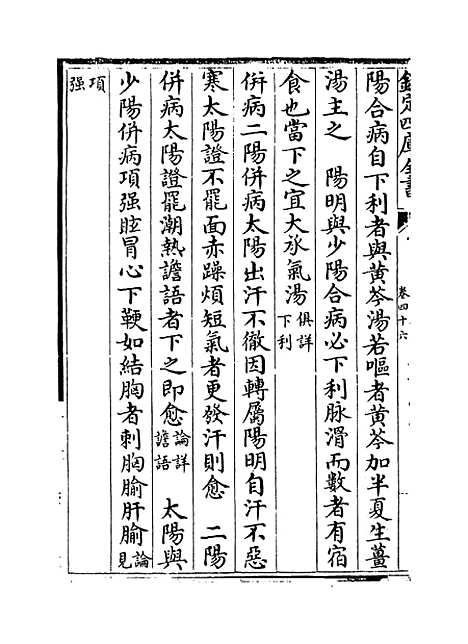 欽定四庫全書
卷四十六
陽合病自下利者與黄芩湯若嘔者黄芩加半夏生薑
湯主之　陽明與少陽合病必下利脉滑而數者有宿
食也當下之宜大承氣湯俱詳下利
併病二陽併病太陽出汗不徹因轉屬陽明自汗不惡
寒太陽證不罷面赤躁煩短氣者更發汗則愈　二陽
併病太陽證罷潮熱譫語者下之即愈論詳譫語　太陽與
少陽併病項强眩冒心下鞕如結胸者刺胸腧肝腧論見
項强